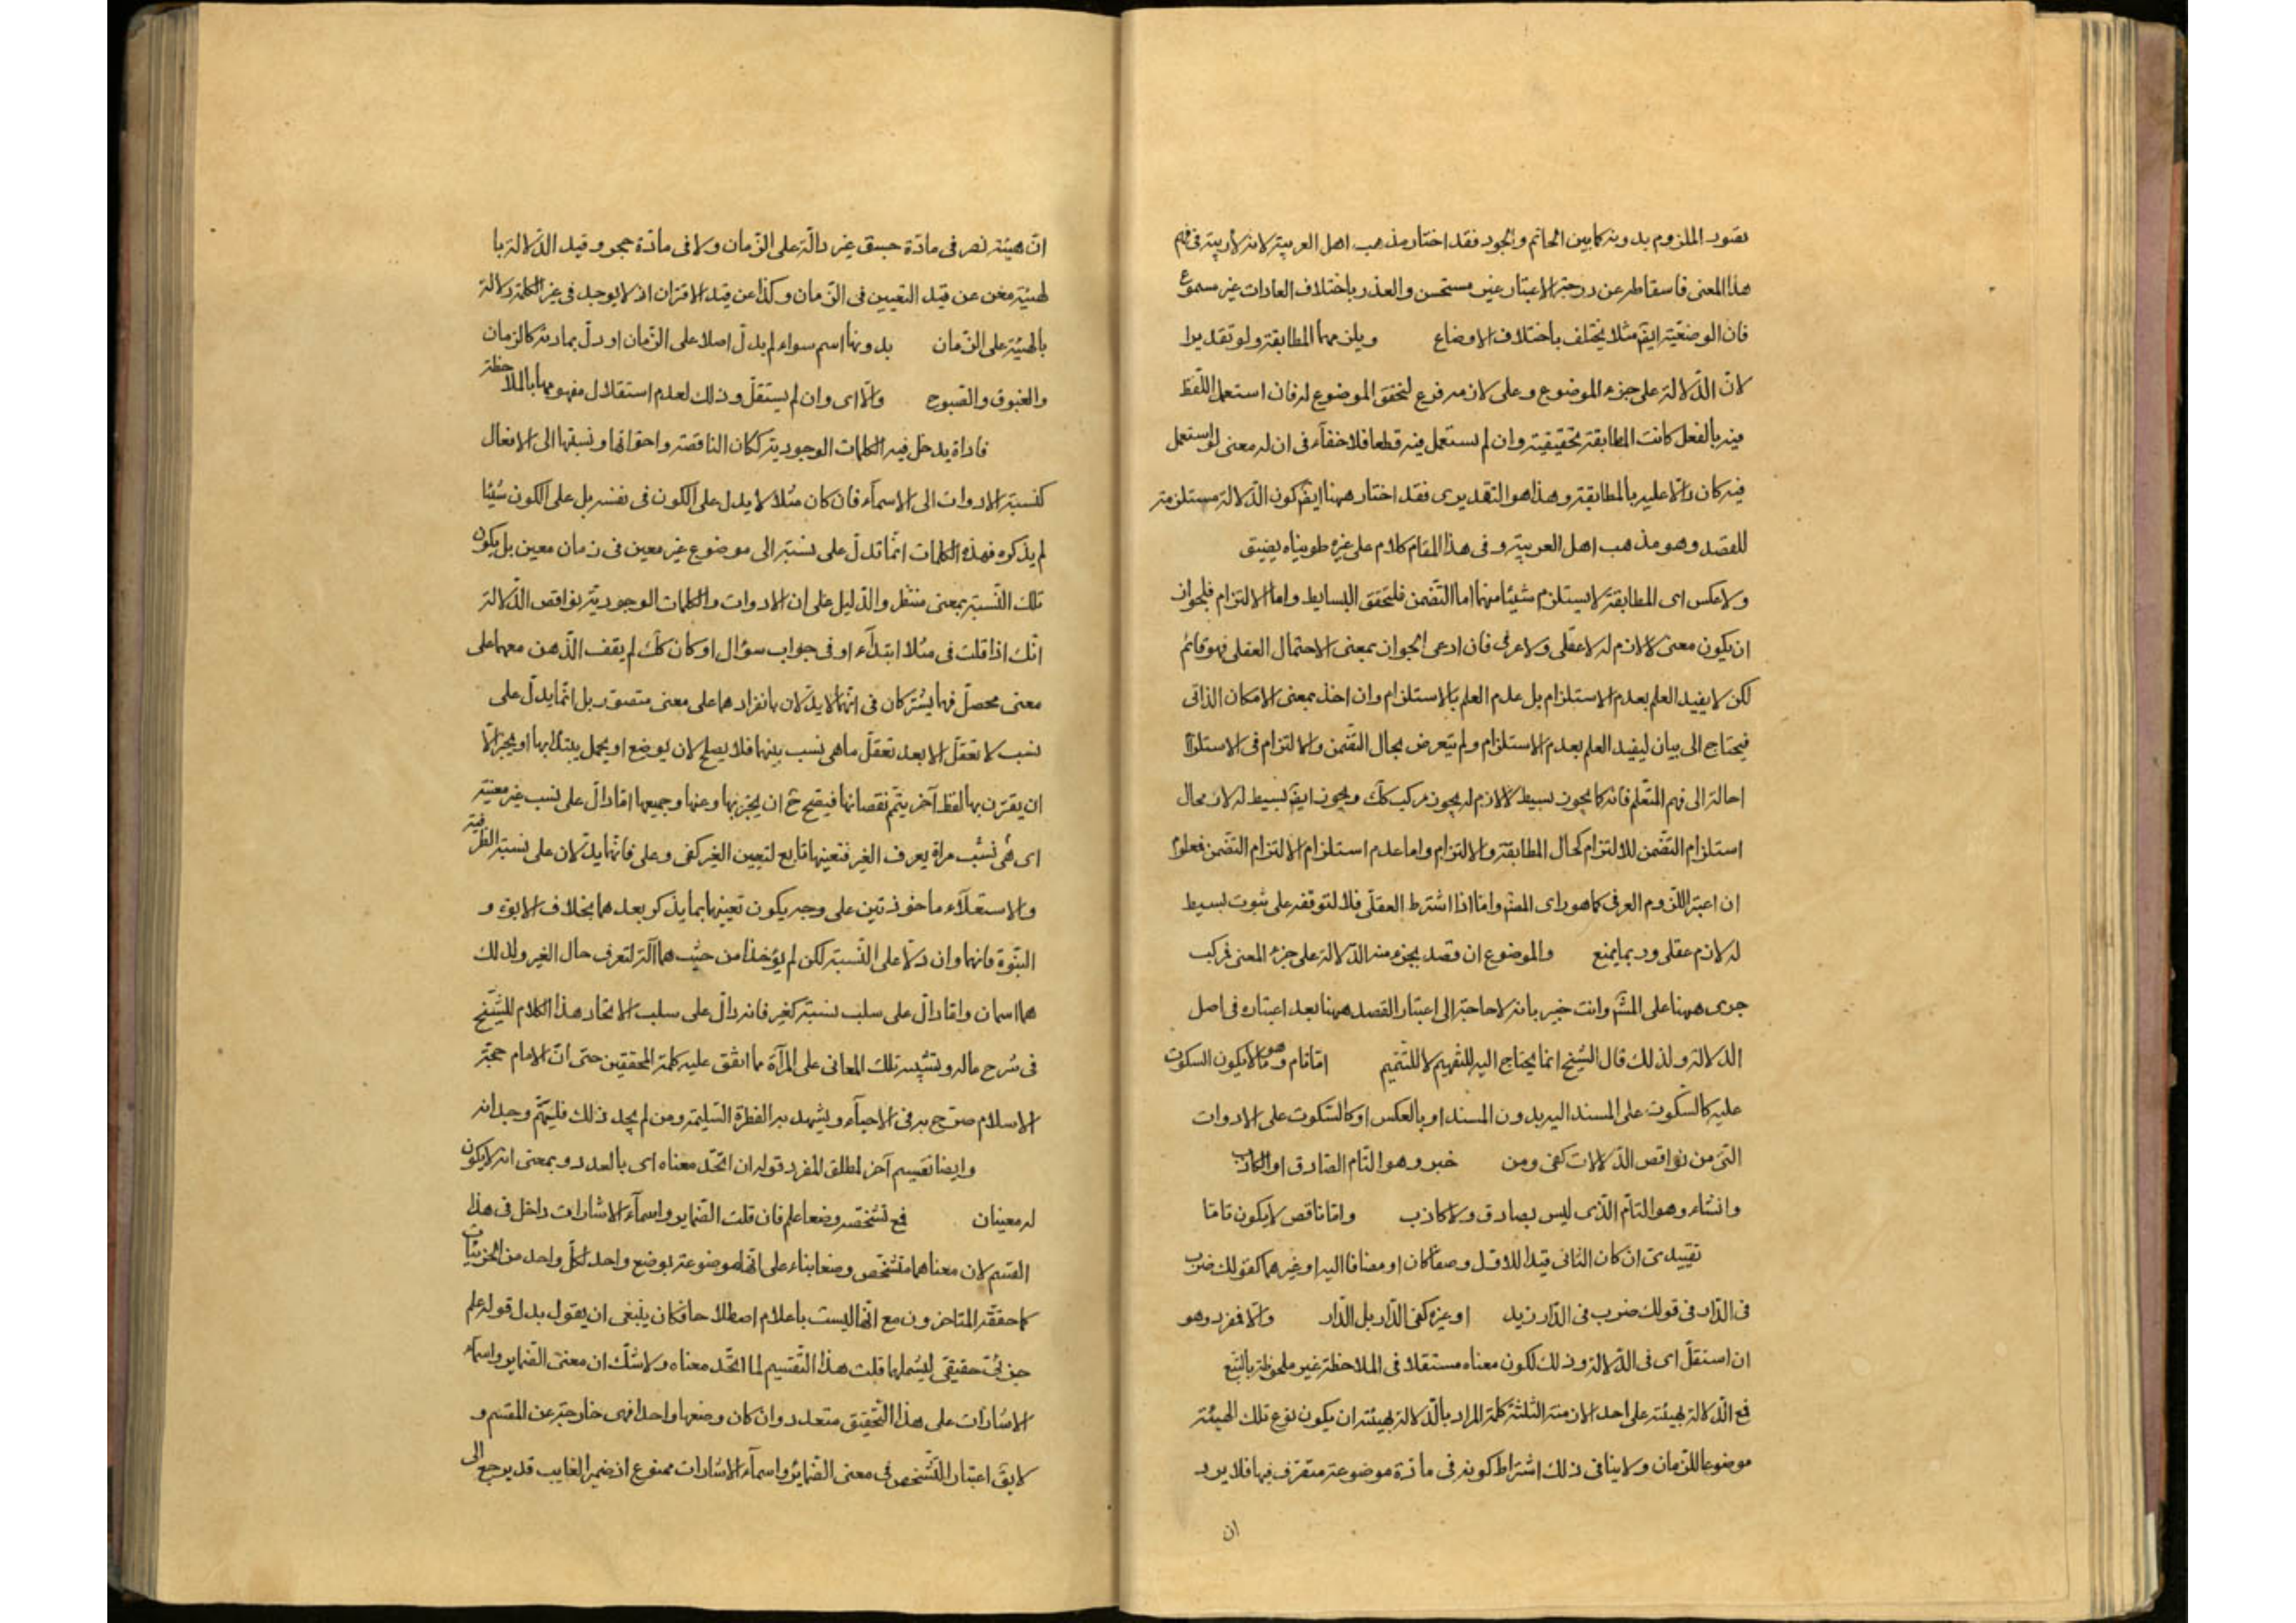 تصور الملزوم بدونه كما بين الحاتم والجود فقد اختار مذهب اهل العربية لانه لا ريبة فى فهم
هذا المعنى فاسقاطه عن درجة الاعتبار غير مستحسن والعذر باختلاف العادات غير مسموع
فان الوضعية ايضً مثلا يختلف باختلاف الاوضاع ويلزمهما المطابقة ولو تقديرا
لان الدّلالة على جزء الموضوع وعلى لازمه فرع لتحقق الموضوع له فان استعمل اللّفظ
فيه بالفعل كانت المطابقة تحقيقية وان لم يستعمل فيه قطعا فلا خفآء فى ان له معنى لو استعمل
فيه كان دالّا عليه بالمطابقة وهذا هو التقديرى فقد اختار ههنا ايضً كون الدّلالة مستلزمة
للقصد وهو مذهب اهل العربية وفى هذا المقام كلام على غيره طويناه يضيق
ولا عكس اى المطابقة لا يستلزم شيئا منهما اما التّضمن فلتحقق البسايط واما الالتزام فلجواز
ان يكون معنى لا لازم له لا عقلى ولا عرفى فان ادعى الجواز بمعنى الاحتمال العقلى فهو قائم
لكن لا يفيد العلم بعدم الاستلزام بل عدم العلم بالاستلزام وان اخذ بمعنى الامكان الذاتى
فيحتاج الى بيان ليفيد العلم بعدم الاستلزام ولم يتعرض بحال التضمن والالتزام فى الاستلزام
احالة الى فهم المتعلم فانه كما يجوز بسيط لا لازم له يجوز مركب كك ويجوز ايضً بسيط له لازم فحال
استلزام التّضمن للالتزام كحال المطابقة والالتزام واما عدم استلزام الالتزام التضمن فمعلوم
ان اعتبر اللّزوم العرفى كما هو راى المصنّف واما اذا اشترط العقلى فلا لتوقفه على ثبوت بسيط
له لازم عقلى وربما يمنع والموضوع ان قصد بجزء منه الدّلالة على جزء المعنى فمركب
جرى ههنا على المشهور وانت خبير بانه لا حاجة الى اعتبار القصد ههنا بعد اعتباره فى اصل
الدّلالة ولذلك قال الشيخ انما يحتاج اليه للتفهيم لا للتتميم اما تام وهو ما لا يكون السكوت
عليه كالسكوت على المسند اليه بدون المسند او بالعكس او كالسّكوت على الادوات
التى من نواقص الدّلالات كفى ومن خبر وهو التام الصّادق او الكاذب
وانشاء وهو التّام الّذى ليس بصادق ولا كاذب واما ناقص لا يكون تامّا
تقييدىّ ان كان الثانى قيدا للاوّل وصفا كان او مضافا اليه او غيرهما كقولك ضرب
فى الدّار فى قولك ضرب فى الدّار زيد او غيره كفى الدّار بل الدّار والّا فمفرد وهو
ان استقلّ اى فى الدّلالة وذلك لكون معناه مستقلا فى الملاحظة غير ملحوظة بالتّبع
فمع الدّلالة بهيئته على احد الازمنة الثلثة كلمة المراد بالدّلالة بهيئته ان يكون نوع تلك الهيئة
موضوعا للزّمان ولا ينافى ذلك اشتراط كونه فى مادّة موضوعة متصرّف فيها فلا يرد
ان
انّ هيئة نصر فى مادّة جسق غير دالّة على الزّمان ولا فى مادّة حجر وقيد الدّلالة با
لهيئة مغن عن قيد التعيين فى الزّمان وكذا عن قيد الاقتران اذ لا يوجد فى غير الكلمة دلالة
بالهيئة على الزّمان بدونها اسم سواء لم يدلّ اصلا على الزّمان او دلّ بمادته كالزمان
والغبوق والصّبوح والّا اى وان لم يستقلّ وذلك لعدم استقلال مفهومها بالملاحظة
فاداة يدخل فيه الكلمات الوجودية ككان الناقصة واخواتها ونسبتها الى الافعال
كنسبة الادوات الى الاسمآء فان كان مثلا لا يدل على الكون فى نفسه بل على الكون شيئا
لم يذكره فهذه الكلمات انّما تدلّ على نسبة الى موضوع غير معين فى زمان معين بل يكون
تلك النّسبة بمعنى منتظر والدّليل على ان الادوات والكلمات الوجوديّة نواقص الدّلالة
انّك اذا قلت فى مثلا ابتدآء او فى جواب سؤال او كان كك لم يقف الذّهن معهما على
معنى محصلّ فهما يشتركان فى انهما لا يدلّان بانفرادهما على معنى متصوّر بل انّما يدلّ على
نسب لا تعقل الا بعد تعقل ما هى نسب بينها فلا يصلح لان يوضع او يحمل يبتدا بها او يخبر الّا
ان يقترن بها لفظ آخر يتمّم نقصانها فيصح ح ان يخبر بها وعنها وجميعها اما دالّ على نسب غير معينة
اى هى نسب مراة يعرف الغير فتعينها تابع لتعيين الغير كفى وعلى فانّهما يدلّان على نسبة الظّرفية
والاستعلآء ماخوذتين على وجه يكون تعينها بما يذكر بعدهما بخلاف الابوّة و
البنّوة فانهما وان دلّا على النّسبة لكن لم يؤخذا من حيث هما آلة لتعرف حال الغير ولذلك
هما اسمان واما دالّ على سلب نسبة كغير فانه دالّ على سلب الاتحاد هذا الكلام للشّيخ
فى شرح ماله وتشبيه تلك المعانى على المرآة ما اتفق عليه كلمة المحققين حتى انّ الامام حجّة
الاسلام صرّح به فى الاحيآء ويشهد به الفطرة السّليمة ومن لم يجد ذلك فليتهم وجدانه
وايضا تقسيم آخر لمطلق المفرد قوله ان اتحّد معناه اى بالعدد وبمعنى انه لا يكون
له معنيان فمع تشخّصه وضعا علم فان قلت الضّماير واسمآء الاشارات داخل فى هذا
القسم لان معناهما متشخّص وضعا بناء على انّها موضوعة بوضع واحد لكلّ واحد من الجزئيات
كما حققّه المتاخرون مع انّها ليست باعلام اصطلاحا فكان ينبغى ان يقول بدل قوله علم
جزئىّ حقيقىّ ليشملها قلت هذا التّقسيم لما اتحّد معناه ولا شكّ ان معنى الضّماير واسماء
الاشارات على هذا التّحقيق متعدد وان كان وضعها واحدا فهى خارجة عن المقسم و
لا يقً اعتبار التّشخص فى معنى الضّمائر واسمآء الاشارات ممنوع اذ ضمير الغايب قد يرجع الى